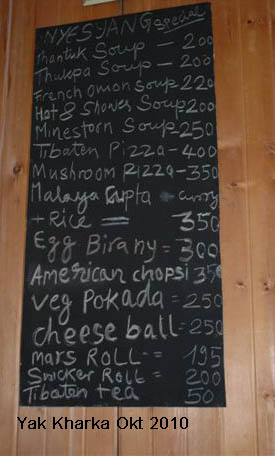 NYESYANG special
Thantuk Soup - 200
Thukpa Soup - 200
French onion Soup 220
Hot & Shower Soup 200
Minestorn Soup 250
Tibaten Pizza - 400
Mushroom Pizza - 350
Malaya Gupta + curry
+ Rice = 350
Egg Birany = 300
American chopsi 350
veg Pokada = 250
cheese ball = 250
Mars ROLL = 195
Snicker ROLL = 200
Tibaten tea 50
Yak Kharka Okt 2010